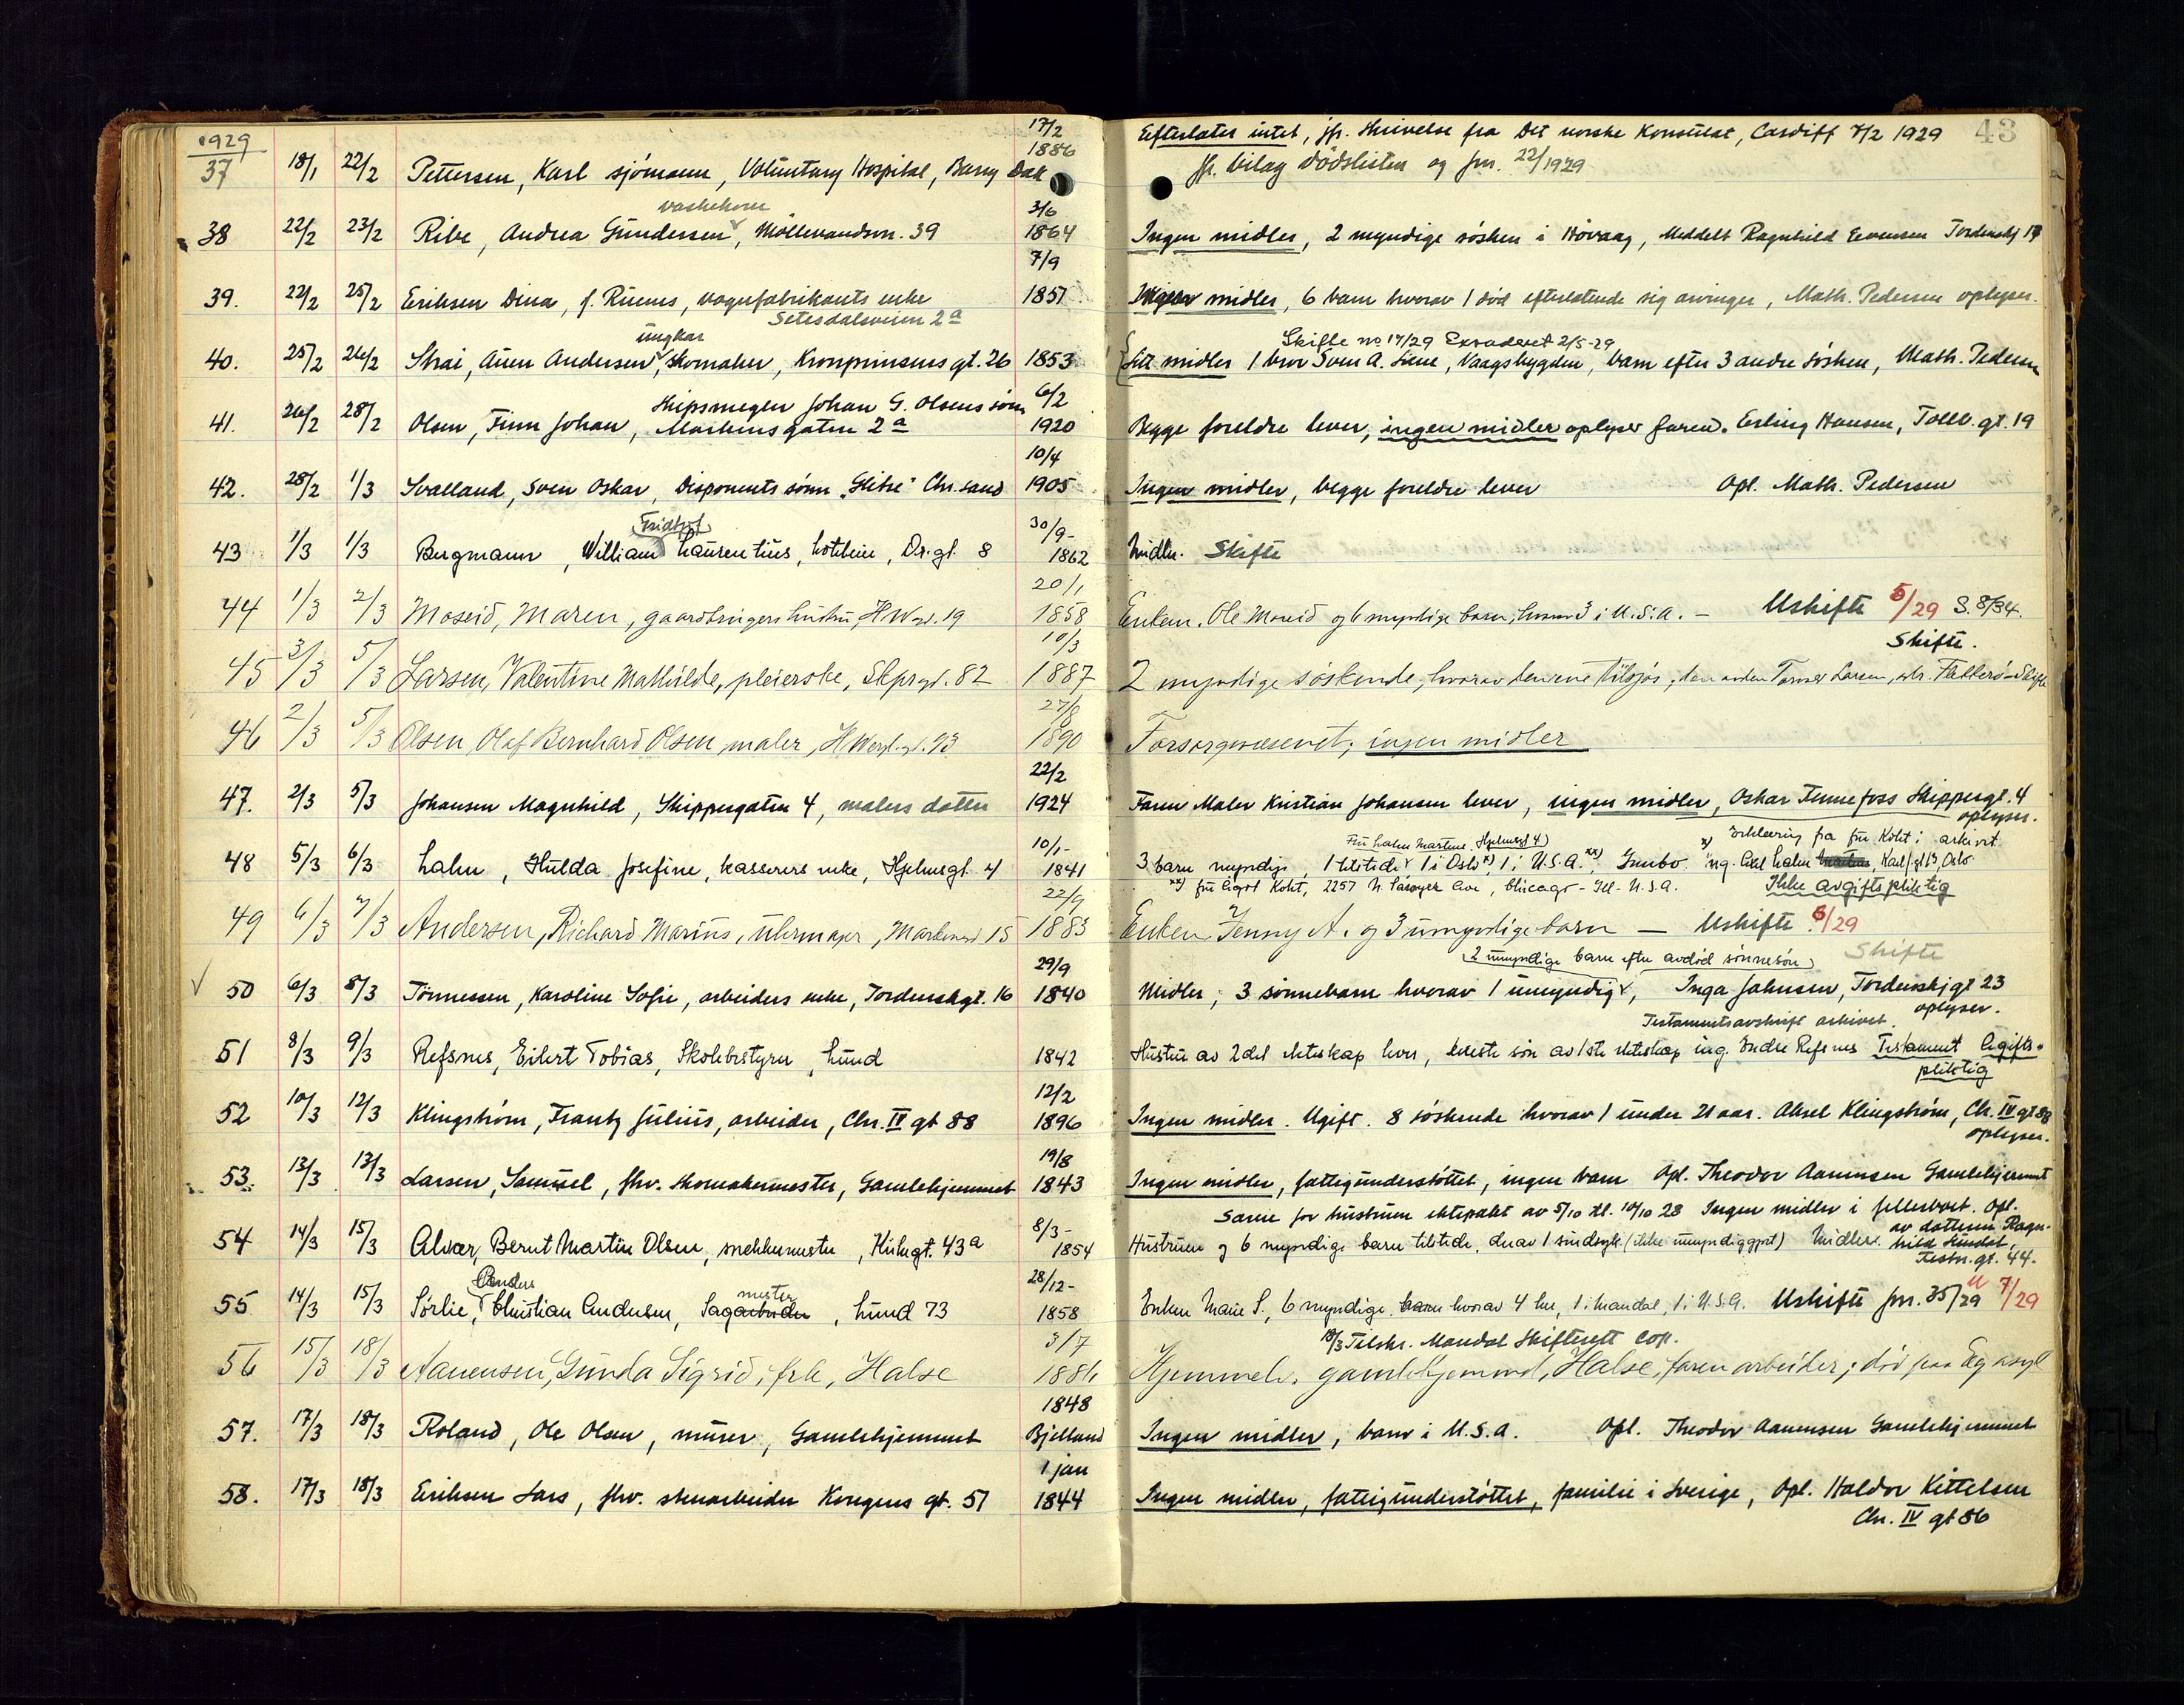 1929
43
37 18/1 22/2 Pettersen, Karl sjömann, Voluntary Hospital, Barry Dok 17/2 1886 Efterlater intet, jfr. skrivelse fra Det norske Konsulat, Cardiff 7/2 1929
jfr. bilag dödslisten og jnr. 22/1929
vaskekone
38 22/2 23/2 Ribe, Andrea Gundersen, Möllevandsv. 39 3/6 1864 Ingen midler, 2 myndige sösken i Hövaag, Meddelt Ragnhild Evensen Tordenskj 17
39. 22/2 25/2 Eriksen Dina, f. Ruenes, vognfabrikants enke 7/9 1851 Ingen midler, 6 barn hvorav 1 död efterlatende sig arvinger, Math. Pedersen oplyser.
Setesdalsveien 2a
ungkar Skifte no 17/29 Exraderet 2/5-29
40. 25/2 26/2 Strai, Aren Andersen, skomaker, Kronprinsens gt. 26 1853 Litt midler 1 bror Sven A. , Vaagsbygden, barn efter 3 andre sösken, Math. Pedersen
Skipsmegler Johan G. Olsens sönn
41. 26/2 28/2 Olsen, Finn Johan, Markensgaten 2a 6/2 1920 Begge foreldre lever, ingen midler oplyser faren. Erling Hansen, Tollb. gt. 19
42. 28/2 1/3 Svalland, Sven Oskar, Disponents sönn "Glitre" Chr.sand 10/4 1905 Ingen midler, begge foreldre lever Opl. Math. Pedersen
Fridtjof
43 1/3 1/3 Bergmann, William Laurentius, hoteleier, Dr.gt. 8 30/9- 1862 Midler. Skifte
44 1/3 2/3 Moseid, Maren, gaardbrugers hustru, H.W.gt. 19 20/1 1858 Enkem. Ole Moseid og 6 myndige barn, hvorav 3 i U.S.A. - Uskifte 5/29 S. 8/34.
Skifte.
45 3/3 5/3 Larsen, Valentine Mathilde, pleierske, Skprgt. 82 10/3 1887 2 myndige söskende, hvorav den ene tilsjös; den anden Larsen,
46 2/3 5/3 Olsen, Olaf Bernhard Olsen, maler, H Wergl. gt. 93 27/8 1890 Forsorgsvæsenet; ingen midler
47. 2/3 5/3 Johansen Magnhild, Skippergaten 4, malers datter 22/2 1924 Faren Maler Kristian Johansen lever, ingen midler, Oskar Tennefoss Skippergt. 4
oplyser.
Fru Lahn Martens. Hjelmsgt 4) x) Erklæring fra fru Koht i arkivet
48 5/3 6/3 Lahn, Hulda Josefine, kasserers enke, Hjelmsgt. 4 10/1- 1841 3 barn myndige, 1 tilstede 1 i Oslo x) 1 i U.S.A. xx) ing. Axel Lahn Oslo.
xx) fru Koht, 2257 N. Sawyer Ave, Chicago - Ill. U.S.A. Ikke avgiftspliktig
49 6/3 7/3 Andersen, Richard Marius, uhrmaker, Markensgt 15 22/9 1883 Enken Jenny A. og 3 umyndige barn - Uskifte 6/29
2 umyndige barn efter avdöd sönnesön Skifte
50 6/3 8/3 Tönnessen, Karoline Sofie, arbeiders enke, Tordenskgt. 16 29/9 1840 Midler, 3 sönnebarn hvorav 1 umyndig, Inga Johnsen, Tordenskjgt 23
oplyser.
Testamentsavskrift arkivet.
51 8/3 9/3 Refsnes, Eilert Tobias, Skolebestyrer, Lund 1842 Hustru av 2det ekteskap lever, eneste sön av 1ste ekteskap ing. Endre Refsnes Testament Avgifts-
pliktig
52 10/3 12/3 Klingström, Frantz Julius, arbeider, Chr. IV gt 88 12/2 1896 Ingen midler. Ugift. 8 söskende hvorav 1 under 21 aar. Aksel Klingström, Chr. IV gt 88
oplyser.
53. 13/3 13/3 Larsen, Samuel, fhv. skomakermester, Gamlehjemmet 19/8 1843 Ingen midler, fattigunderstöttet, ingen barn Opl. Theodor Aanensen Gamlehjemmet
Særeie for hustruen ektepakt av 5/10 tl. 10/10 28 Ingen midler i fellesboet. Opl.
54 14/3 15/3 Alvær, Bernt Martin Olsen, snekkermester, Kirkegt. 43a 8/3- 1854 Hustruen og 6 myndige barn tilstede, derav 1 sindsyk (ikke umyndiggjort) Midler. av datteren Ragn-
hild
Festn. gt. 44.
Anders mester
55 14/3 15/3 Sörlie, Christian Andersen, Sagarbeider, Lund 73 28/12- 1858 Enken Marie S., 6 myndige barn hvorav 4 her, 1 i Mandal, 1 i U.S.A. Uskifte jnr. 35/29 7/29
18/3 Tilskr. Mandal Skifterett Cop.
56 15/3 18/3 Aanensen, Gunda Sigrid, frk, Halse 3/7 1886 Hjemmeh. gamlehjemmet, Halse, faren arbeider; död paa Eg asyl
57. 17/3 18/3 Roland, Ole Olsen, murer, Gamlehjemmet 1848 Bjelland Ingen midler, barn i U.S.A. Opl. Theodor Aanensen Gamlehjemmet
58. 17/3 18/3 Eriksen Lars, fhv. stenarbeider Kongens gt. 51 1 jan 1844 Ingen midler, fattigunderstöttet, familie i Sverige, Opl. Haldor Kittelsen
Chr. IV gt 86